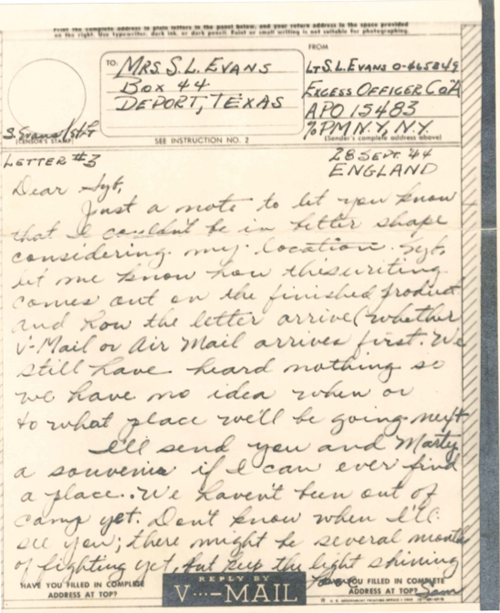 Print the complete address in plain letters in the panel below, and your return address in the space provided
on the right. Use typewriter, dark ink, or dark pencil. Faint or small writing is not suitable for photographing.
TO:
MRS S.L. EVANS
BOX 44
DEPORT, TEXAS
FROM
LT S.L. EVANS O-465849
EXCESS OFFICER Co A
APO 15483
% PM N.Y., N.Y.
(Sender's complete address above)
S Evans
(CENSOR'S STAMP)
SEE INSTRUCTION NO. 2
LETTER #3
28 SEPT. '44
ENGLAND
Dear Sgt,
Just a note to let you know
that I couldn't be in better shape
considering my location. Sgt,
let me know how the writing
comes out on the finished product
and how the letter arrive (whether
V-Mail or Air Mail arrives first. We
still have heard nothing so
we have no idea when or
to what place we'll be going next
I'll send you and Marty
a souvenir if I can ever find
a place. We haven't been out of
camp yet. Don't know when I'll
see you; there might be several months
of fighting yet, but keep the light shining
Sam
HAVE YOU FILLED IN COMPLETE
ADDRESS AT TOP?
REPLY BY
V···—MAIL
HAVE YOU FILLED IN COMPLETE
ADDRESS AT TOP?